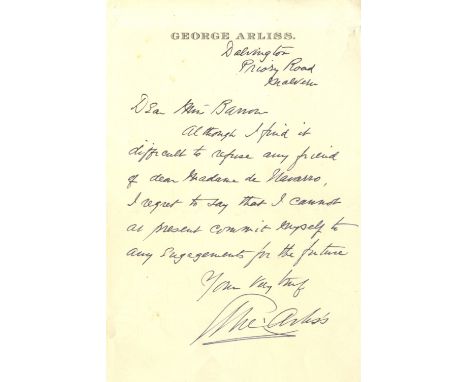 GEORGE ARLISS.
Dalvington
Priory Road
Malvern
Dear Miss Barron
Although I find it
difficult to refuse any friend
of dear Madame de Navarro,
I regret to say that I cannot
at present commit myself to
any Engagements for the future
Yours very truly
Geo: Arliss